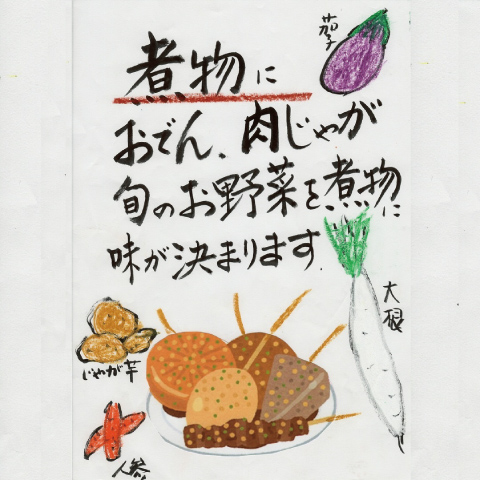 煮物に
おでん、肉じゃが
旬のお野菜を煮物に
味が決まります
茄子
大根
じゃが芋
人参